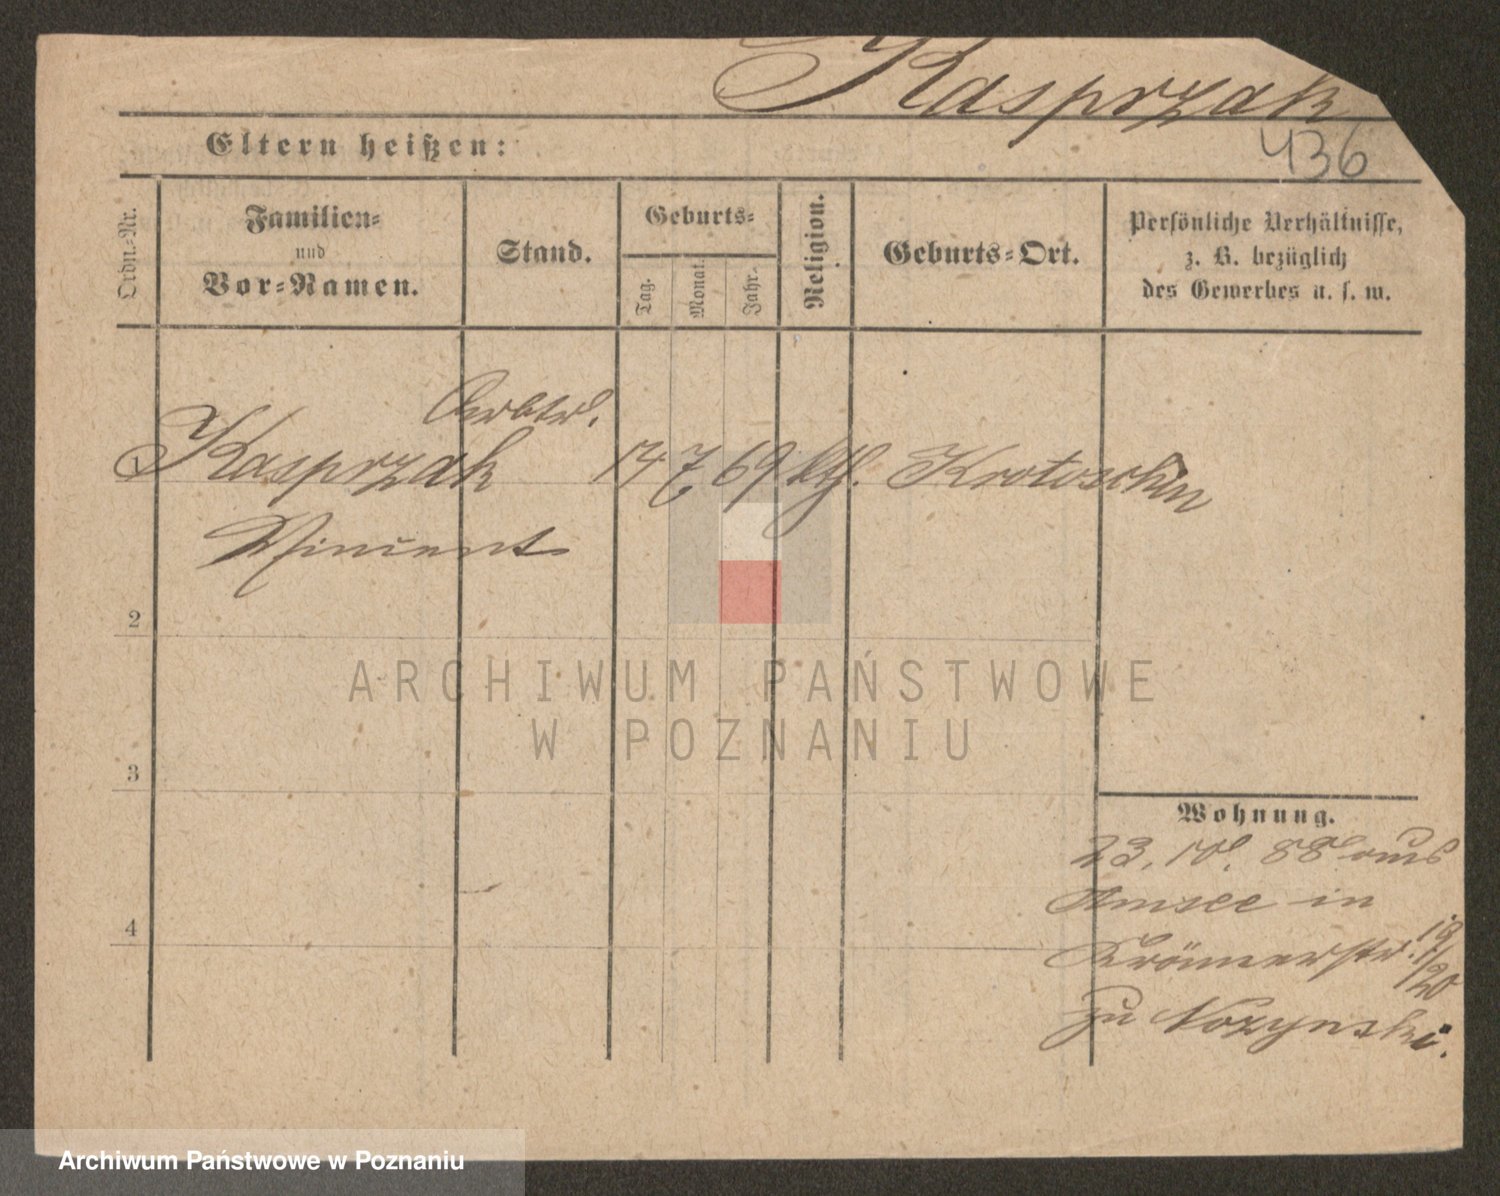 Kasprzak
436
Eltern heißen:
Ordn.-Nr.
Familien-
und
Vor-Namen.
Stand.
Geburts-
Tag.
Monat.
Jahr.
Religion.
Geburts-Ort.
Persönliche Verhältnisse,
z. B. bezüglich
des Gewerbes u. s. w.
Arbtr.
1 Kasprzak 14 7 69 kth. Krotoschin
Vincent
2
3
4
Wohnung.
23. 10. 88 aus
Amsee in
18/20
zu
ARCHIWUM PAŃSTWOWE
W POZNANIU
Archiwum Państwowe w Poznaniu